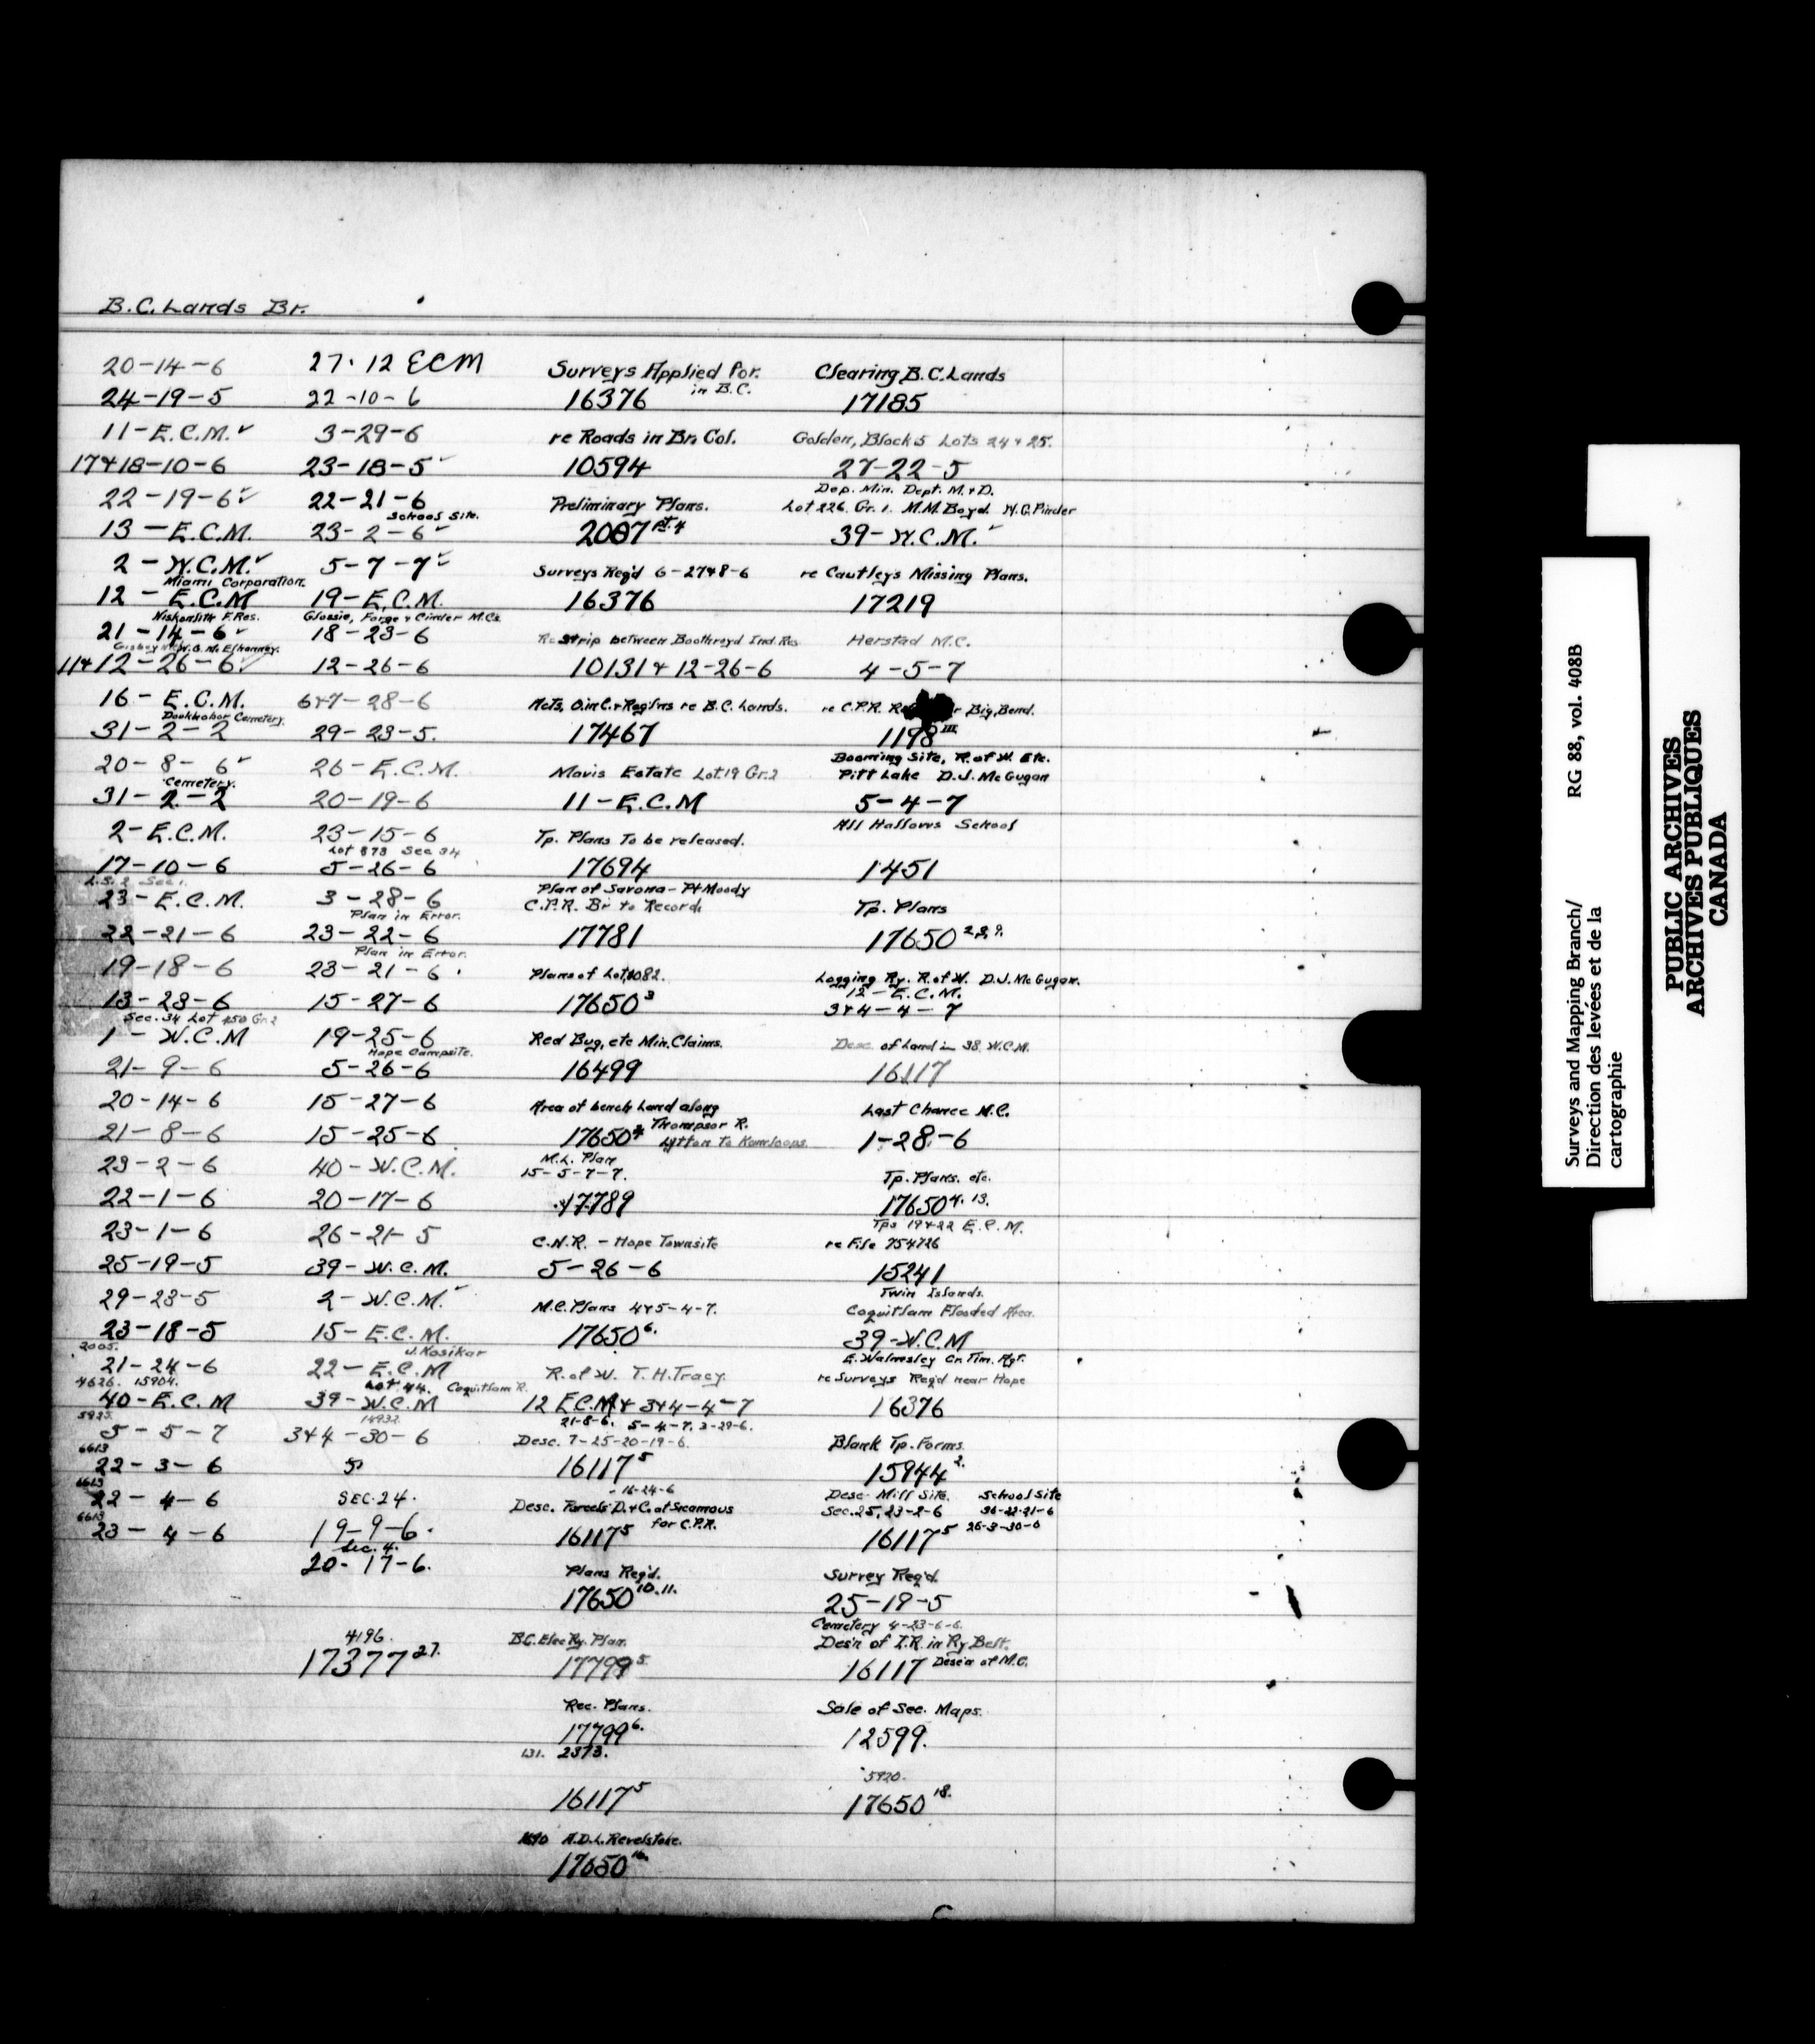 B.C. Lands Br.
20-14-6
24-19-5
11-E.C.M. ✓
17+18-10-6
22-19-6 ✓
13-E.C.M.
2-W.C.M. ✓
Miami Corporation.
12-E.C.M
Niskonlith F. Res.
21-14-6 ✓
11+12-26-6 ✓
16-E.C.M.
Doukhobor Cemetery.
31-2-2
20-8-6 ✓
Cemetery.
31-2-2
2-E.C.M.
17-10-6
L.S. 2 Sec 1.
23-E.C.M.
22-21-6
19-18-6
13-28-6
Sec. 34 Lot 250 Gr. 2
1-W.C.M
21-9-6
20-14-6
21-8-6
23-2-6
22-1-6
23-1-6
25-19-5
29-23-5
23-18-5
2005.
21-24-6
4626. 15904.
40-E.C.M
5925.
5-5-7
6613
22-3-6
6613
22-4-6
6613
23-4-6
27.12 ECM
22-10-6
3-29-6
23-18-5 ✓
22-21-6
School Site.
23-2-6 ✓
5-7-7 ✓
19-E.C.M.
Glossie, Forge & Cinder M.Cs.
18-23-6
12-26-6
6+7-28-6
29-23-5.
26-E.C.M.
20-19-6
23-15-6
Lot 573 Sec 34
5-26-6
3-28-6
Plan in Error.
23-22-6
Plan in Error.
23-21-6
15-27-6
19-25-6
Hope Campsite.
5-26-6
15-27-6
15-25-6
40-W.C.M.
20-17-6
26-21-5
39-W.C.M.
2-W.C.M. ✓
15-E.C.M.
J. Kosikar
22-E.C.M
Lot 44. Coquitlam R.
39-W.C.M
14932.
3+4-30-6
5
SEC. 24.
19-9-6.
Sec. 4.
20-17-6.
4196.
17377 27.
Surveys Applied For.
in B.C.
16376
re Roads in Br. Col.
10594
Preliminary Plans.
2087 Pt. 4
Surveys Req'd 6-27+8-6
16376
Re Strip between Boothroyd Ind. Res
10131 & 12-26-6
Acts, O. in C. & Reg'ns re B.C. Lands.
17467
Movis Estate Lot 19 Gr. 2
11-E.C.M
Tp. Plans To be released.
17694
Plan of Savona-Pt Moody
C.P.R. Br. to Records
17781
Plans of Lot 1082.
17650 3
Red Bug, etc Min. Claims.
16499
Area of bench land along
Thompson R.
17650 4 Lytton to Kamloops.
M.L. Plan
15-5-7-7.
17789
C.N.R. - Hope Townsite
5-26-6
M.C. Plans 4+5-4-7.
17650 6.
R. of W. T.H. Tracy.
12 E.C.M & 3+4-4-7
21-8-6. 5-4-7. 3-29-6.
Desc. 7-25-20-19-6.
16117 5
-16-24-6
Desc. Parcels D. & C. at Sicamous
for C.P.R.
16117 5
Plans Req'd.
17650 10.11.
B.C. Elec Ry. Plan.
17799 5.
Rec. Plans.
17799 6.
131. 2373.
16117 5
1690 A.D.L. Revelstoke.
17650 16.
Clearing B.C. Lands
17185
Golden, Block 5 Lots 24 & 25.
27-22-5
Dep. Min. Dept. M. & D.
Lot 226. Gr. 1. M.M. Boyd. W.G. Pinder
39-W.C.M. ✓
re Cautleys Missing Plans.
17219
Herstad M.C.
4-5-7
re C.P.R. Big Bend.
1198 III
Booming Site, R. of W. Etc.
Pitt Lake D.J. McGugan
5-4-7
All Hallows School
1451
Tp. Plans
17650 2,8,9.
Logging Ry. R. of W. D.J. McGugan.
12-E.C.M.
3+4-4-7
Desc. of Land in 38. W.C.M.
16117
Last Chance M.C.
1-28-6
Tp. Plans. etc.
17650 4. 13.
Tps 19+22 E.C.M.
re File 754726
15241
Twin Islands.
Coquitlam Flooded Area.
39-W.C.M
E. Walmsley Cr. Tim. Agt.
re Surveys Req'd near Hope
16376
Blank Tp. Forms.
15944 2.
Desc. Mill Site. School Site
Sec. 25, 23-2-6 36-22-21-6
16117 5 26-3-30-6
Survey Req'd.
25-19-5
Cemetery 4-23-6-6.
Des'n of I.R. in Ry Belt.
16117 Desc'n of M.C.
Sale of Sec. Maps.
12599.
5920.
17650 18.
Surveys and Mapping Branch/ RG 88, vol. 408B
Direction des levées et de la
cartographie
PUBLIC ARCHIVES
ARCHIVES PUBLIQUES
CANADA